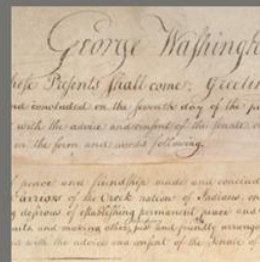 George Washingt
hese Presents shall come; Greetin
nd concluded on the seventh day of the p
with the advice and consent of the Senate
in the form and words following.
peace and friendship made and conclud
Warriors of the Creek nation of Indians,
desirous of establishing permanent peace and
and making other, just and friendly arrange
with the advice and consent of the Senate of